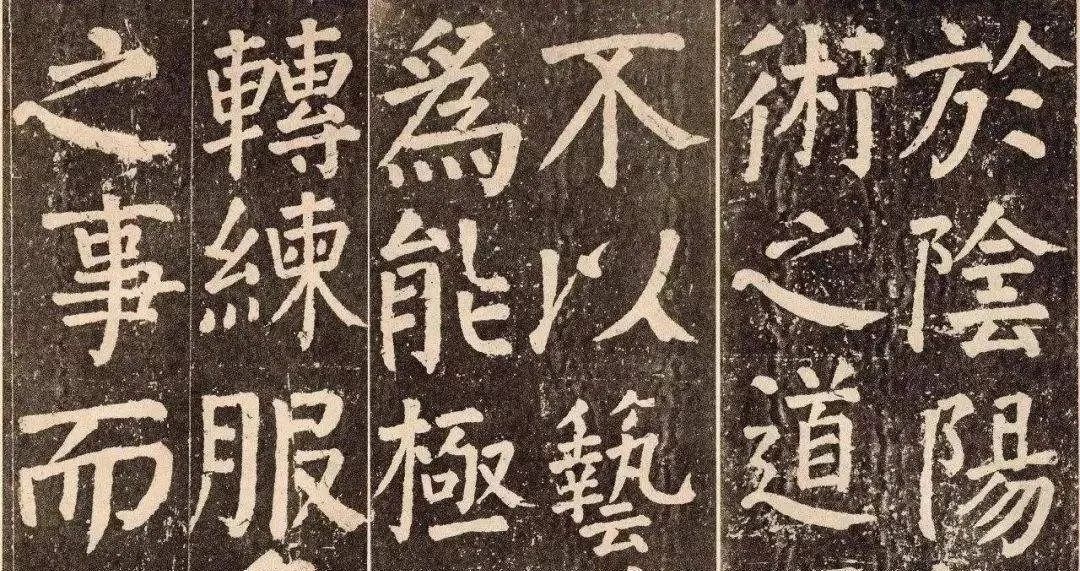 於陰陽
術之道
不以藝
為能極
轉練服
之事而